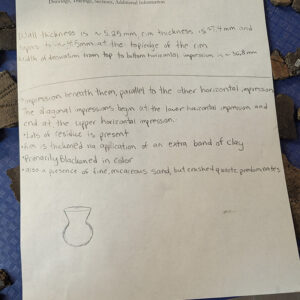 Drawings, Tracings, Sections, Additional Information
Wall thickness is ~ 5.25mm, rim thickness is 5.4mm and
tapers to ~4.5mm at the top/edge of the rim
Width of decoration from top to bottom horizontal impression is ~ 30.8mm
impression beneath them, parallel to the other horizontal impression
The diagonal impressions begin at the lower horizontal impression and
end at the upper horizontal impression.
•Lots of residue is present
•Rim is thickened via application of an extra band of clay
•Primarily Blackened in color
•Also a presence of fine, micaceous sand, but crushed quartz predominates